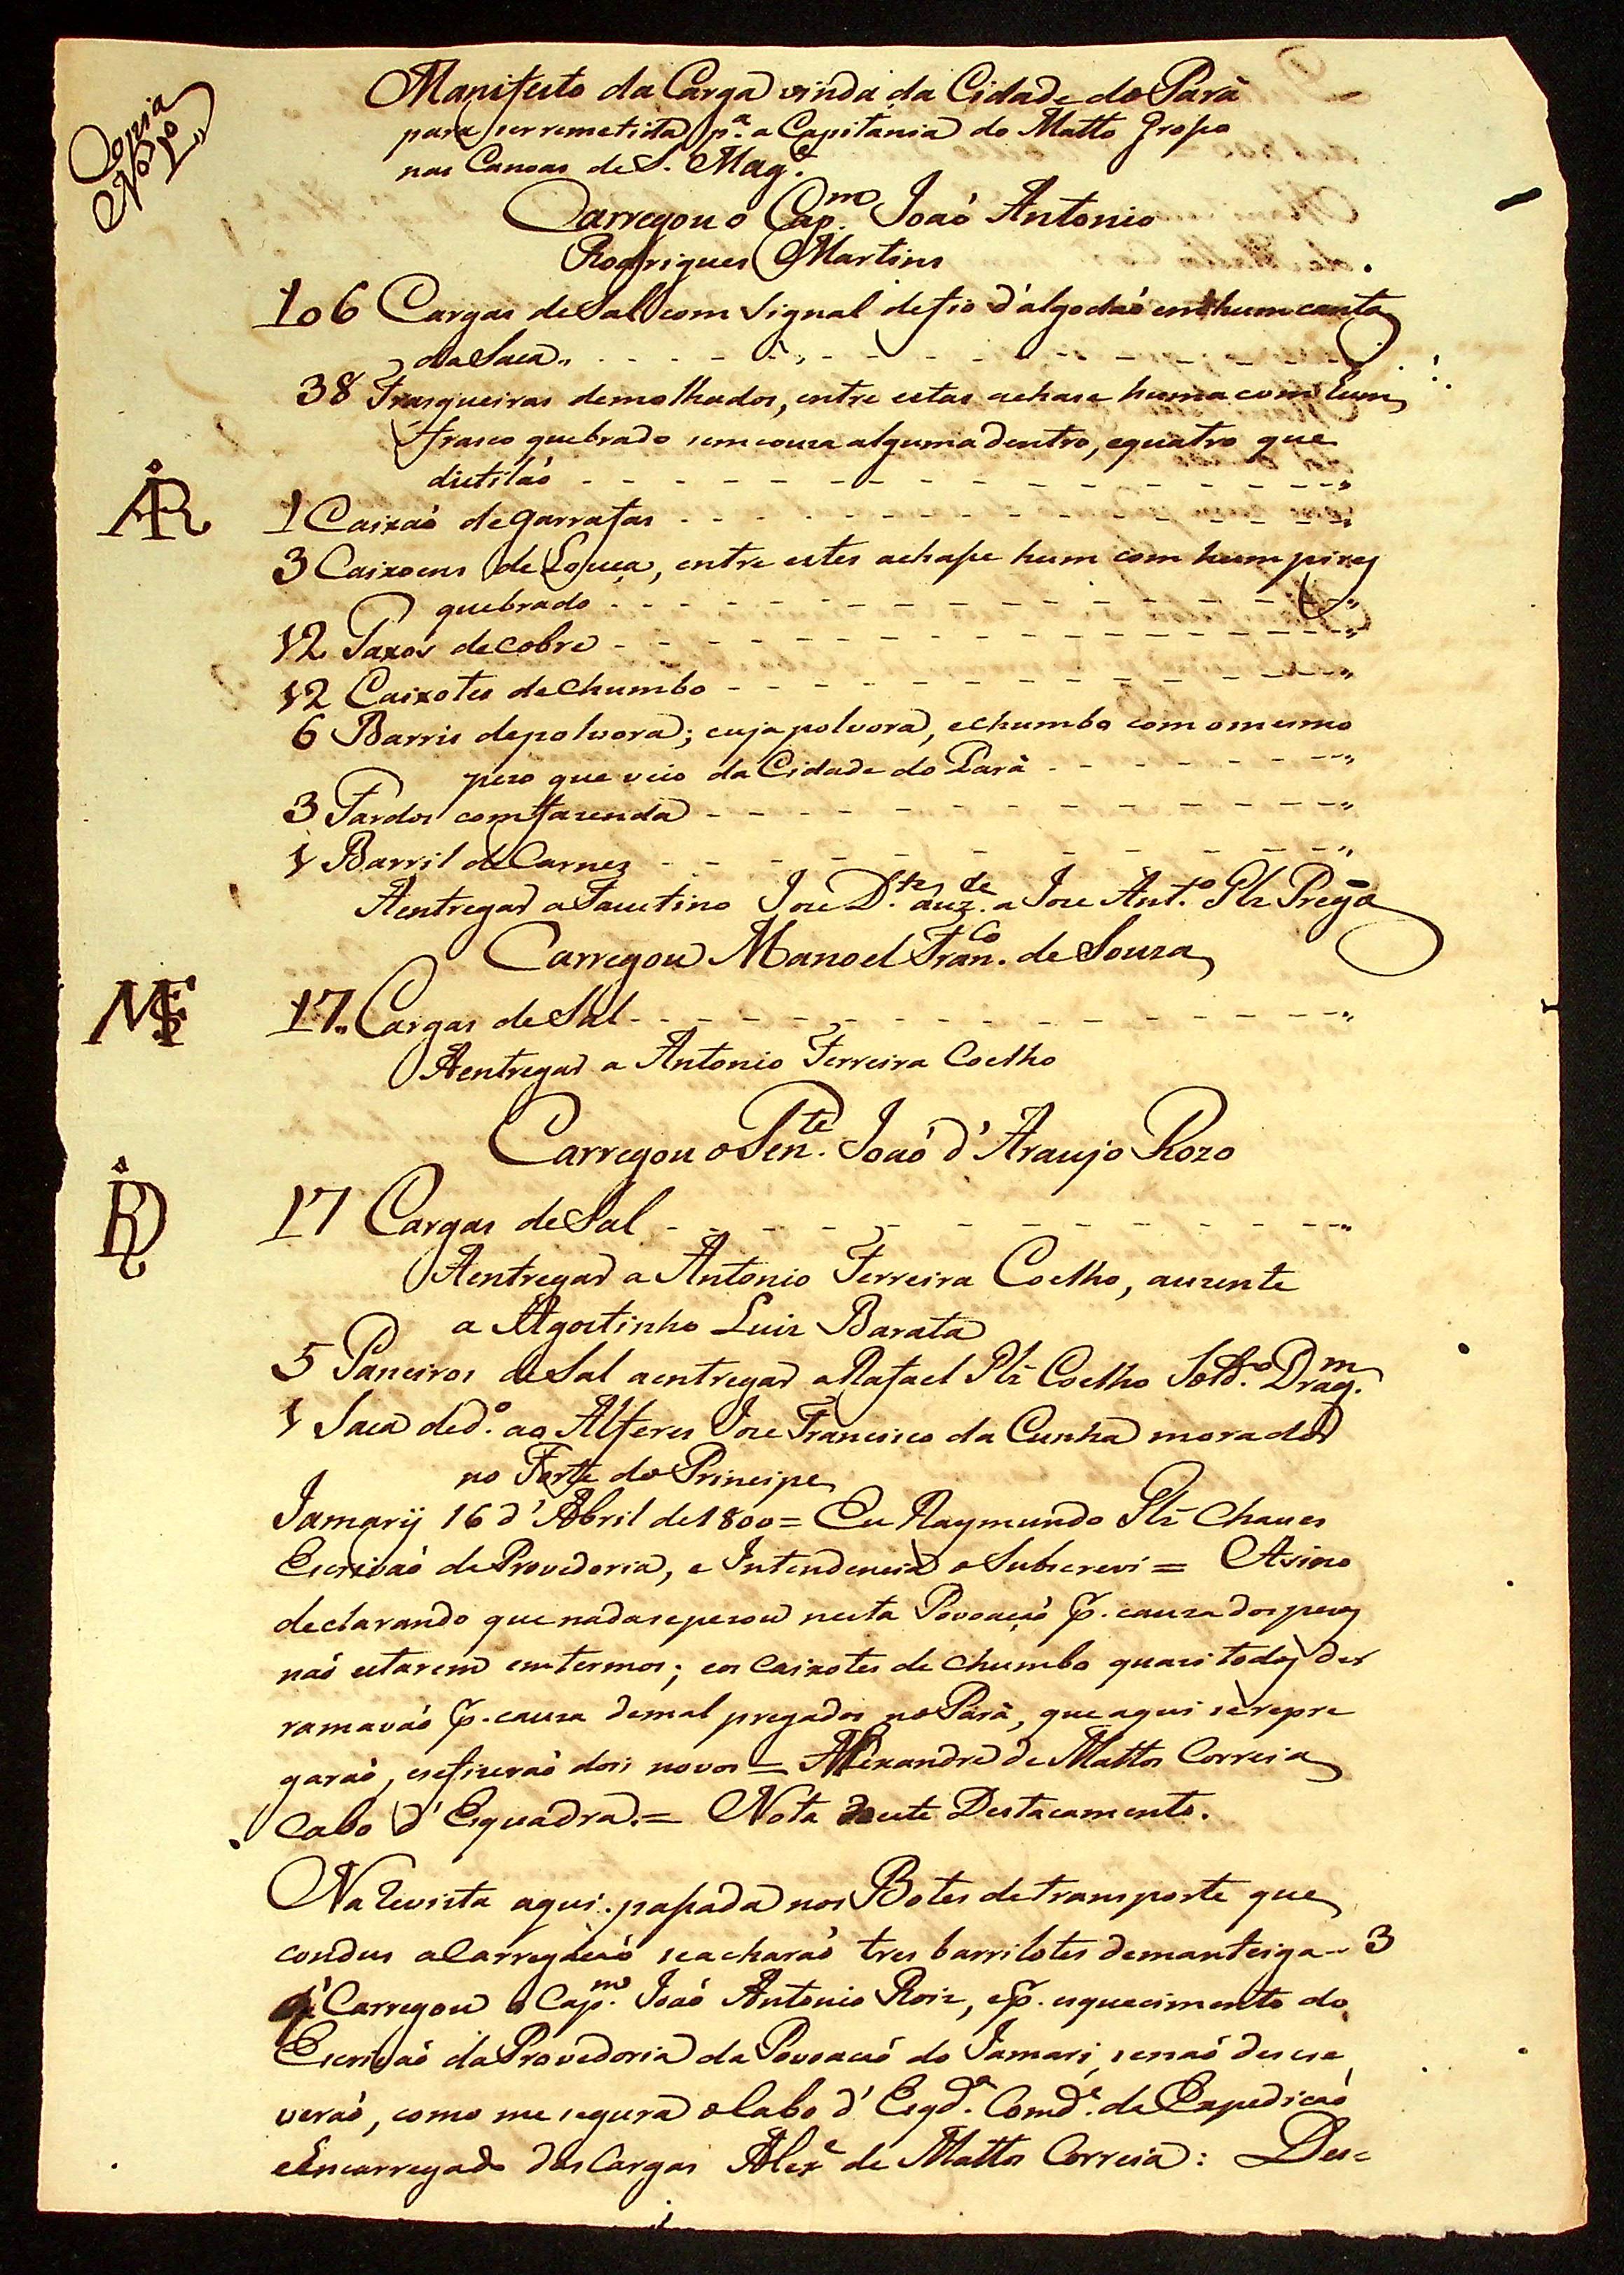 Copia
Nº 3º
Manifesto da Carga vinda da Cidade do Pará
para ser remetida pª. a Capitania do Matto Groso
nas Canoas de S. Magᵉ.
Carregou o Capᵐ. João Antonio
Rodrigues Martins
106 Cargas de Sal com Signal de fio d'algodaõ em hum canto
da Saca
38 Frasqueiras de molhados, entre estas achase huma com hum
frasco quebrado sem couza alguma dentro, e quatro que
distilaõ
AR 1 Caixaõ de garrafas
3 Caixoens de Louça, entre estes achase hum com hum pires
quebrado
12 Taxos de cobre
12 Caixotes de chumbo
6 Barris de polvora; cuja polvora, e chumbo com o mesmo
pezo que veio da Cidade do Pará
3 Fardos com fazenda
1 Barril de Carnes
A entregar a Faustino Joze auzᵗᵉ. a Joze Antº.
Carregou Manoel Franᶜᵒ. de Souza
MF 17 Cargas de Sal
A entregar a Antonio Ferreira Coelho
Carregou o Tenᵗᵉ. Joaõ d'Araujo Rozo
17 Cargas de Sal
A entregar a Antonio Ferreira Coelho, auzente
a Agostinho Luiz Barata
5 Paneiros de Sal a entregar a Rafael Plz̃ Coelho Soldº. Dragᵐ.
1 Saca de dº. ao Alferes Joze Francisco da Cunha morador
no Forte do Principe
Jamarÿ 16 d'Abril de 1800 = Eu Raymundo Plz̃ Chaves
Escrivaõ de Provedoria, e Intendencia o Subscrevi = Asino
declarando que nada se pezou nesta Povoaçaõ p. cauza dos pezos
naõ estarem em termos; e os caixotes de chumbo quazi todos der
ramavaõ p. cauza de mal pregados no Pará, que aqui se repre
garaõ, e se fizeraõ dois novos = Alexandre de Mattos Correia
Cabo d'Esquadra. = Nota deste Destacamento.
Na Revista aqui pasada nos Botes de transporte que
condus a Carregaçaõ se acharaõ tres barrilotes de manteiga - 3
q̃ Carregou o Capᵐ. Joaõ Antonio Roiz, e p. esquecimento do
Escrivaõ da Provedoria da Povoaçaõ do Jamari, se naõ descre
veraõ, como me segura o Cabo d'Esqdª. Comdᵉ. da Expediçaõ
e Encarregado das Cargas Alexᵉ de Mattos Correia: Des=